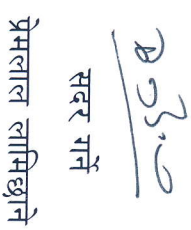 सदर गर्ने
प्रेमलाल लामिछाने